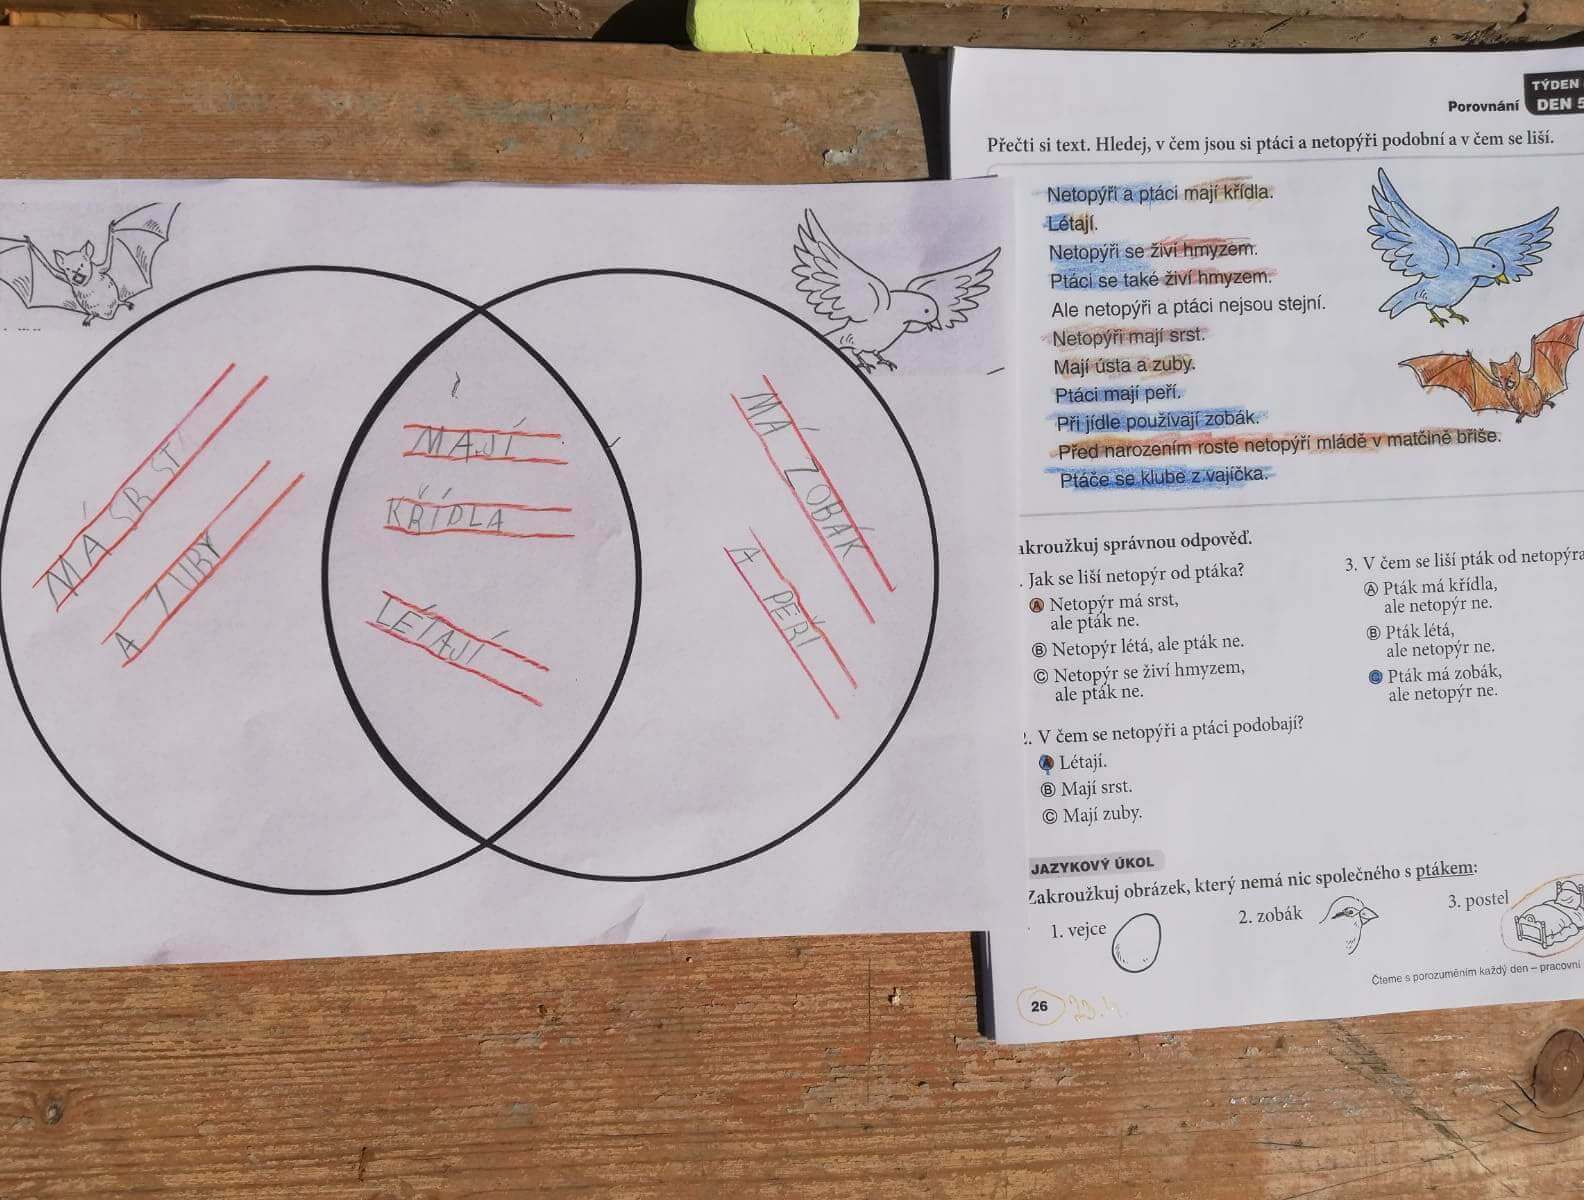 MÁ SRST
A ZUBY
MAJÍ
KŘÍDLA
LÉTAJÍ
MÁ ZOBÁK
A PEŘÍ
TÝDEN
Porovnání DEN 5
Přečti si text. Hledej, v čem jsou si ptáci a netopýři podobní a v čem se liší.
Netopýři a ptáci mají křídla.
Létají.
Netopýři se živí hmyzem.
Ptáci se také živí hmyzem.
Ale netopýři a ptáci nejsou stejní.
Netopýři mají srst.
Mají ústa a zuby.
Ptáci mají peří.
Při jídle používají zobák.
Před narozením roste netopýří mládě v matčině břiše.
Ptáče se klube z vajíčka.
akroužkuj správnou odpověď.
. Jak se liší netopýr od ptáka?
A Netopýr má srst,
ale pták ne.
B Netopýr létá, ale pták ne.
C Netopýr se živí hmyzem,
ale pták ne.
2. V čem se netopýři a ptáci podobají?
A Létají.
B Mají srst.
C Mají zuby.
3. V čem se liší pták od netopýra
A Pták má křídla,
ale netopýr ne.
B Pták létá,
ale netopýr ne.
C Pták má zobák,
ale netopýr ne.
JAZYKOVÝ ÚKOL
Zakroužkuj obrázek, který nemá nic společného s ptákem:
1. vejce 2. zobák 3. postel
Čteme s porozuměním každý den – pracovní
26 23.4.